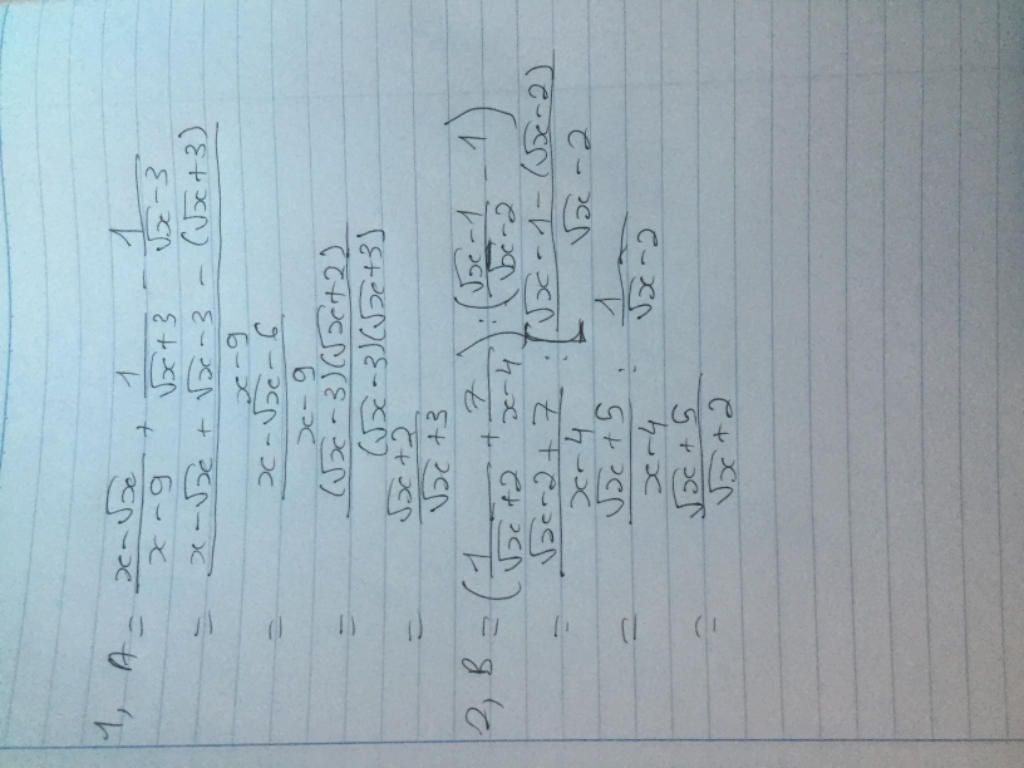 1, A = \frac{x-\sqrt{x}}{x-9} + \frac{1}{\sqrt{x}+3} - \frac{1}{\sqrt{x}-3}
= \frac{x-\sqrt{x}+\sqrt{x}-3-(\sqrt{x}+3)}{x-9}
= \frac{x-\sqrt{x}-6}{x-9}
= \frac{(\sqrt{x}-3)(\sqrt{x}+2)}{(\sqrt{x}-3)(\sqrt{x}+3)}
= \frac{\sqrt{x}+2}{\sqrt{x}+3}
2, B = (\frac{1}{\sqrt{x}+2} + \frac{7}{x-4}) : (\frac{\sqrt{x}-1}{\sqrt{x}-2} - 1)
= \frac{\sqrt{x}-2+7}{x-4} : [\frac{\sqrt{x}-1-(\sqrt{x}-2)}{\sqrt{x}-2}
= \frac{\sqrt{x}+5}{x-4} : \frac{1}{\sqrt{x}-2}
= \frac{\sqrt{x}+5}{\sqrt{x}+2}